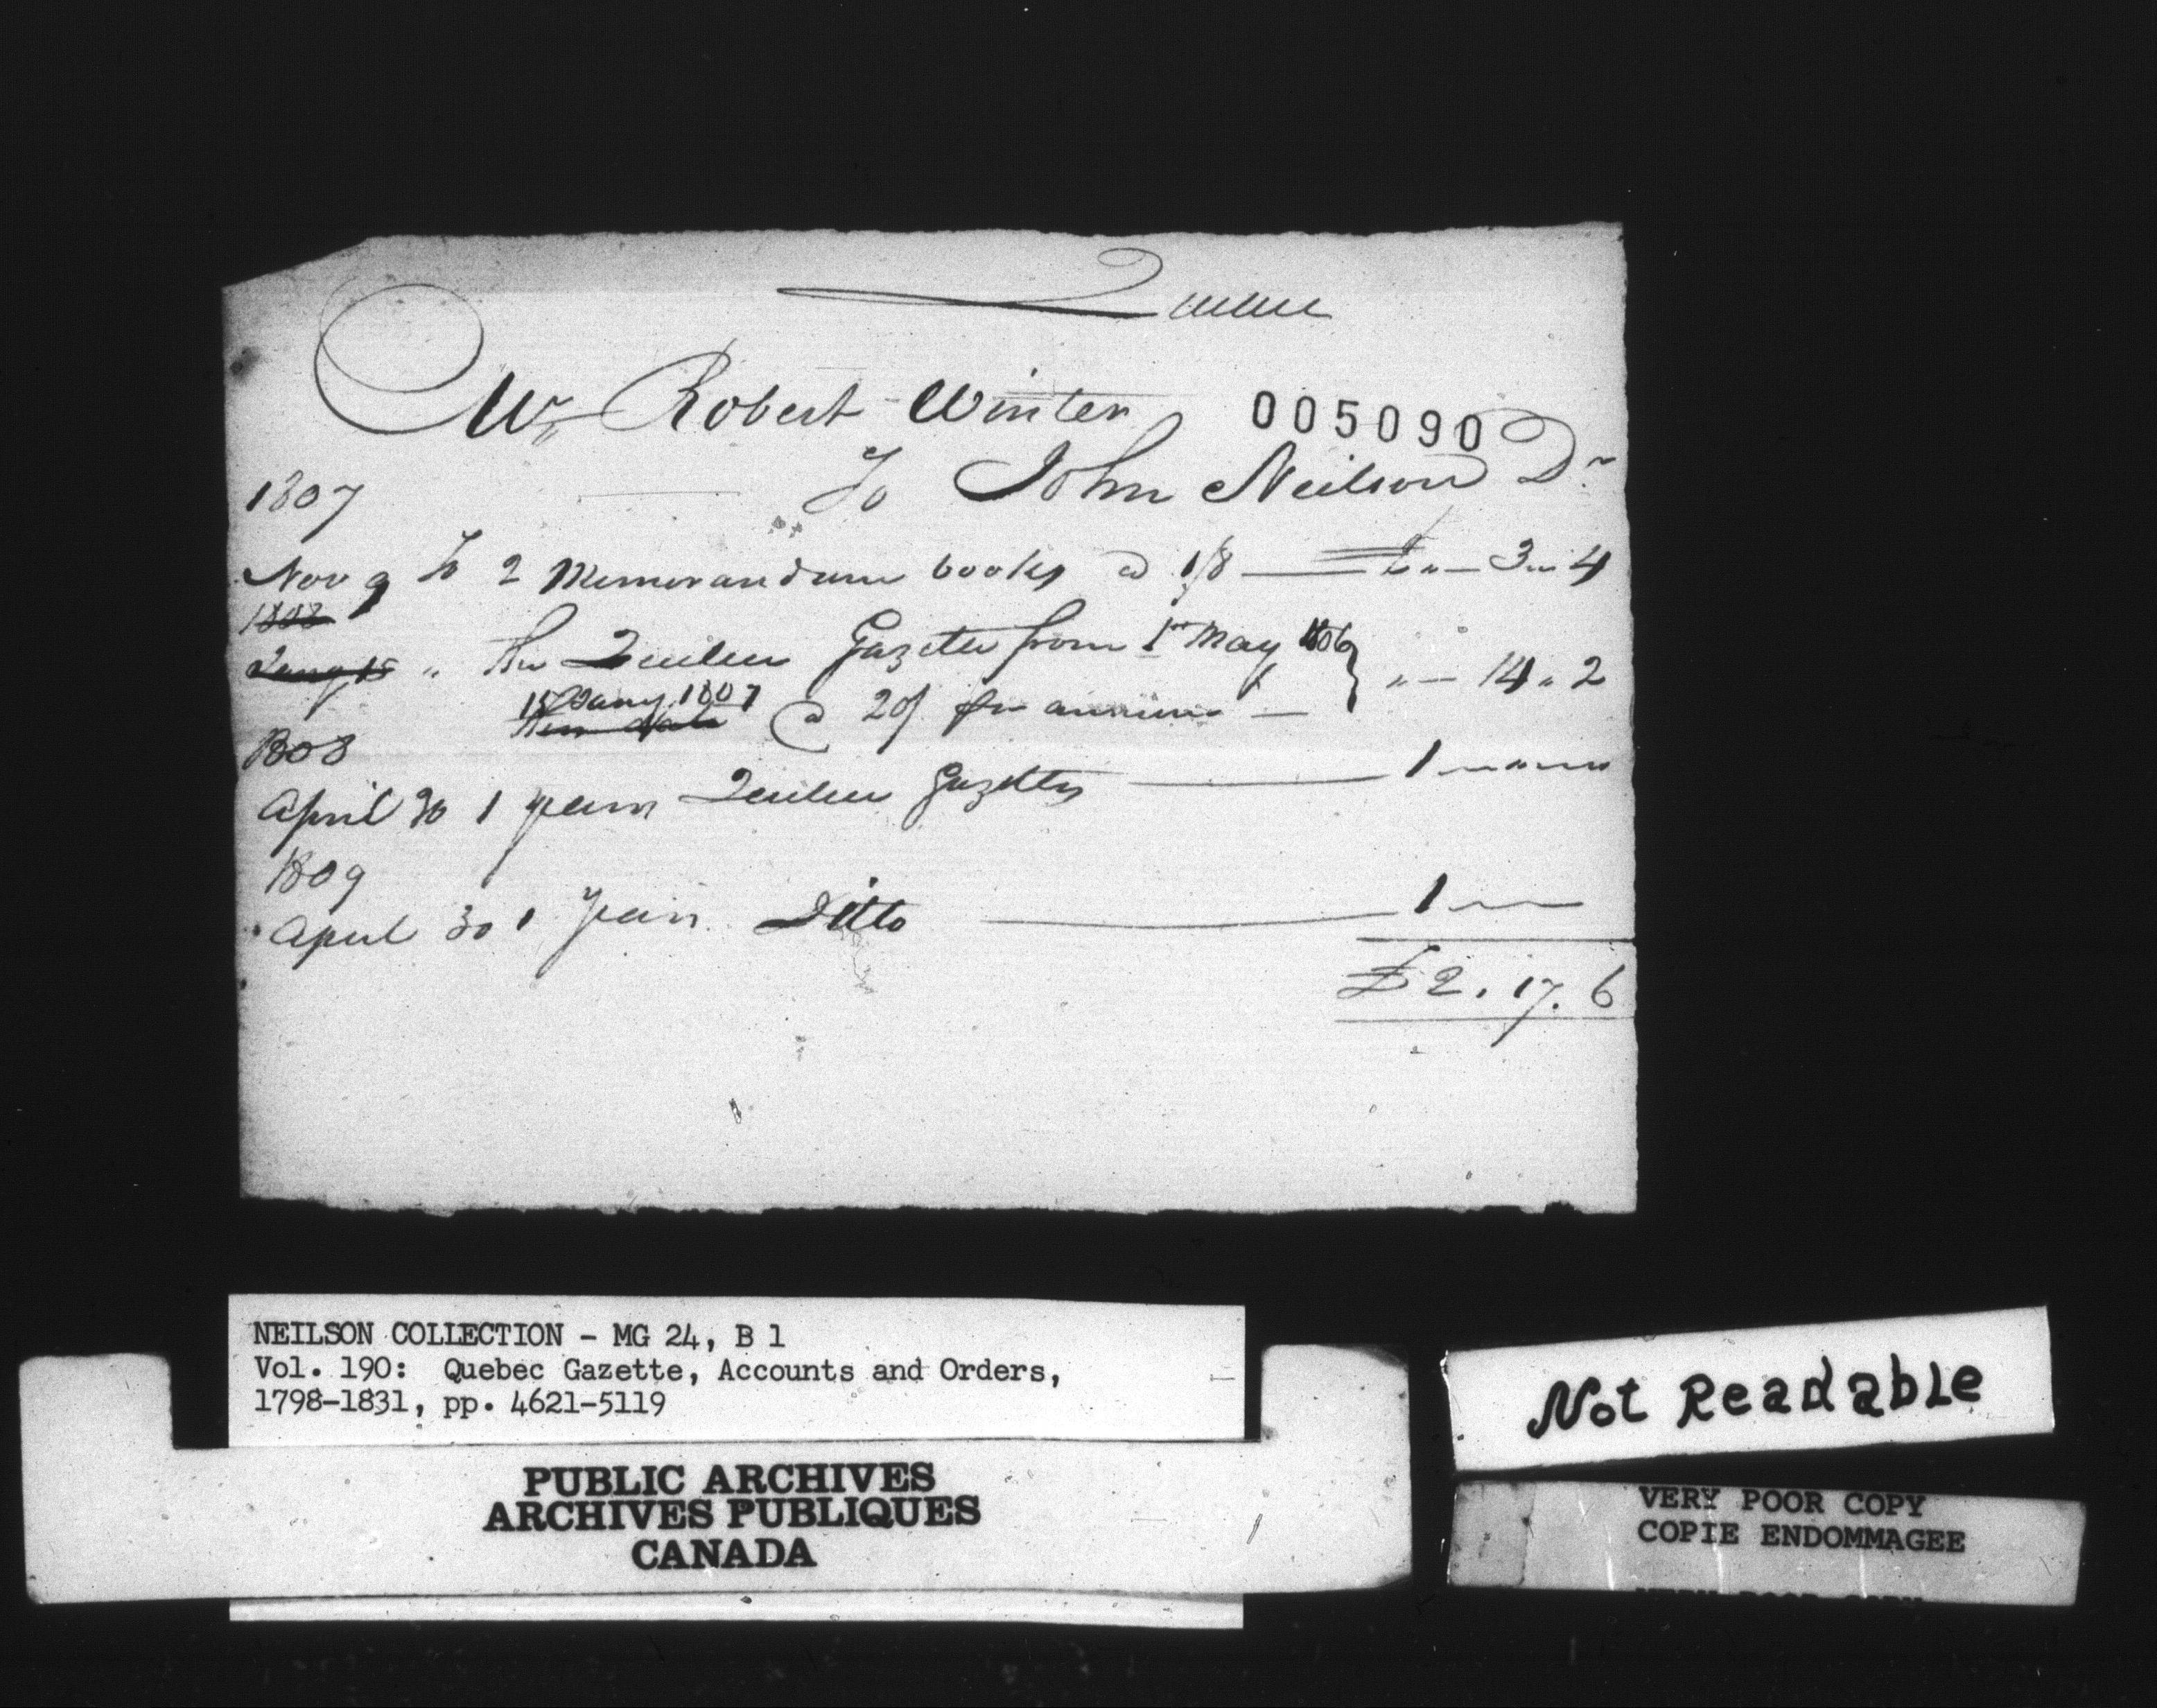 Quebec
Mr Robert Winter
005090
To John Neilson Dr
1807
Nov 9 To 2 Memorandum books @ 1/8 £ " 3 " 4
1808
Jany 15 " the Quebec Gazette from 1st May 1806 } " 14 " 2
15 Jany 1807
this date @ 20/ per annum
1808
April 30 1 year Quebec Gazette 1 " " "
1809
April 30 1 year Ditto 1
£2. 17. 6
NEILSON COLLECTION - MG 24, B 1
Vol. 190: Quebec Gazette, Accounts and Orders,
1798-1831, pp. 4621-5119
PUBLIC ARCHIVES
ARCHIVES PUBLIQUES
CANADA
Not Readable
VERY POOR COPY
COPIE ENDOMMAGEE